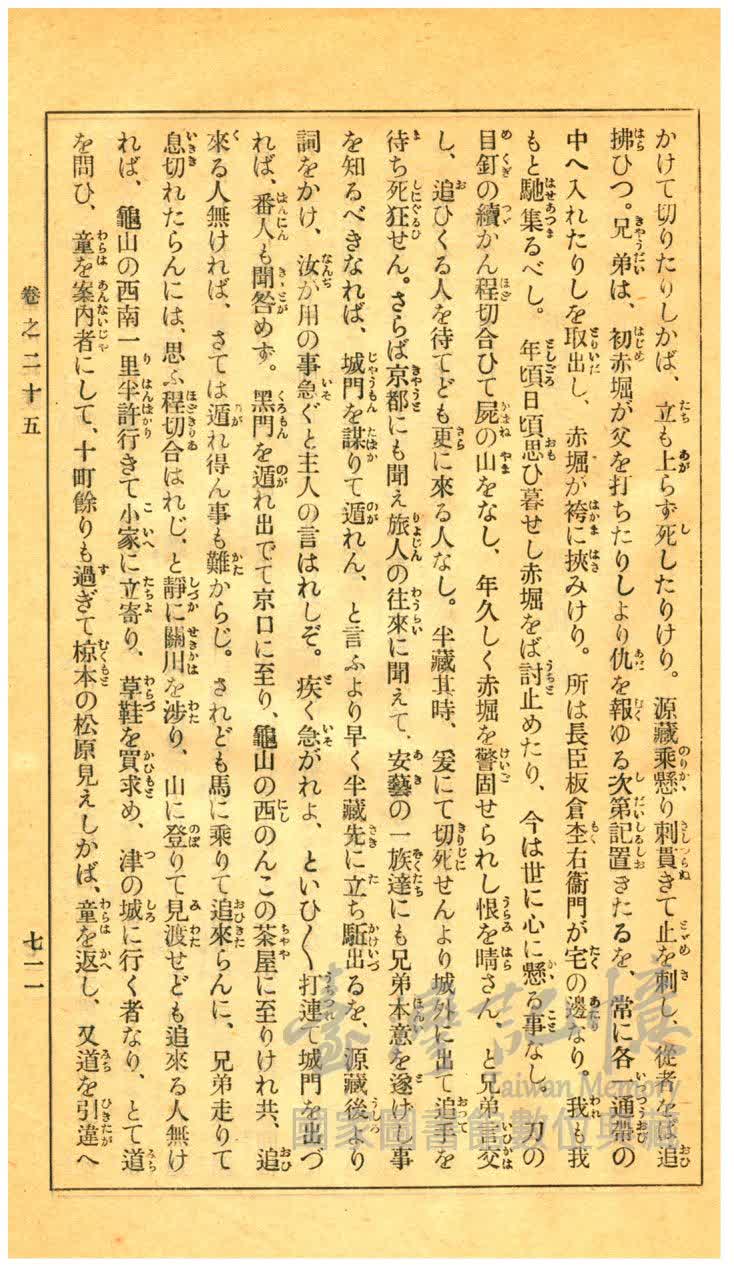 かけて切りたりしかば、立も上らず死したりけり。源藏乘懸り刺貫きて止を刺し、從者をば追
拂ひつ。兄弟は、初赤堀が父を打ちたりしより仇を報ゆる次第記置きたるを、常に各通帶の
中へ入れたりしを取出し、赤堀が袴に挾みけり。所は長臣板倉杢右衞門が宅の邊なり。我も我
もと馳集るべし。年頃日頃思ひ暮せし赤堀をば討止めたり、今は世に心に懸る事なし。刀の
目釘の續かん程切合ひて屍の山をなし、年久しく赤堀を警固せられし恨を晴さん、と兄弟言交
し、追ひくる人を待てども更に來る人なし。半藏其時、爰にて切死せんより城外に出て追手を
待ち死狂せん。さらば京都にも聞え旅人の往來に聞えて、安藝の一族達にも兄弟本意を遂げし事
を知るべきなれば、城門を謀りて遁れん、と言ふより早く半藏先に立ち駈出るを、源藏後より
詞をかけ、汝が用の事急ぐと主人の言はれしぞ。疾く急がれよ、といひ〳〵打連て城門を出づ
れば、番人も聞咎めず。黑門を遁れ出でて京口に至り、龜山の西のんこの茶屋に至りけれ共、追
來る人無ければ、さては遁れ得ん事も難からじ。されども馬に乘りて追來らんに、兄弟走りて
息切れたらんには、思ふ程切合はれじ、と靜に關川を涉り、山に登りて見渡せども追來る人無け
れば、龜山の西南一里半許行きて小家に立寄り、草鞋を買求め、津の城に行く者なり、とて道
を問ひ、童を案內者にして、十町餘りも過ぎて椋本の松原見えしかば、童を返し、又道を引違へ
卷之二十五
七一一
臺灣記憶
Taiwan Memory
國家圖書館數位典藏